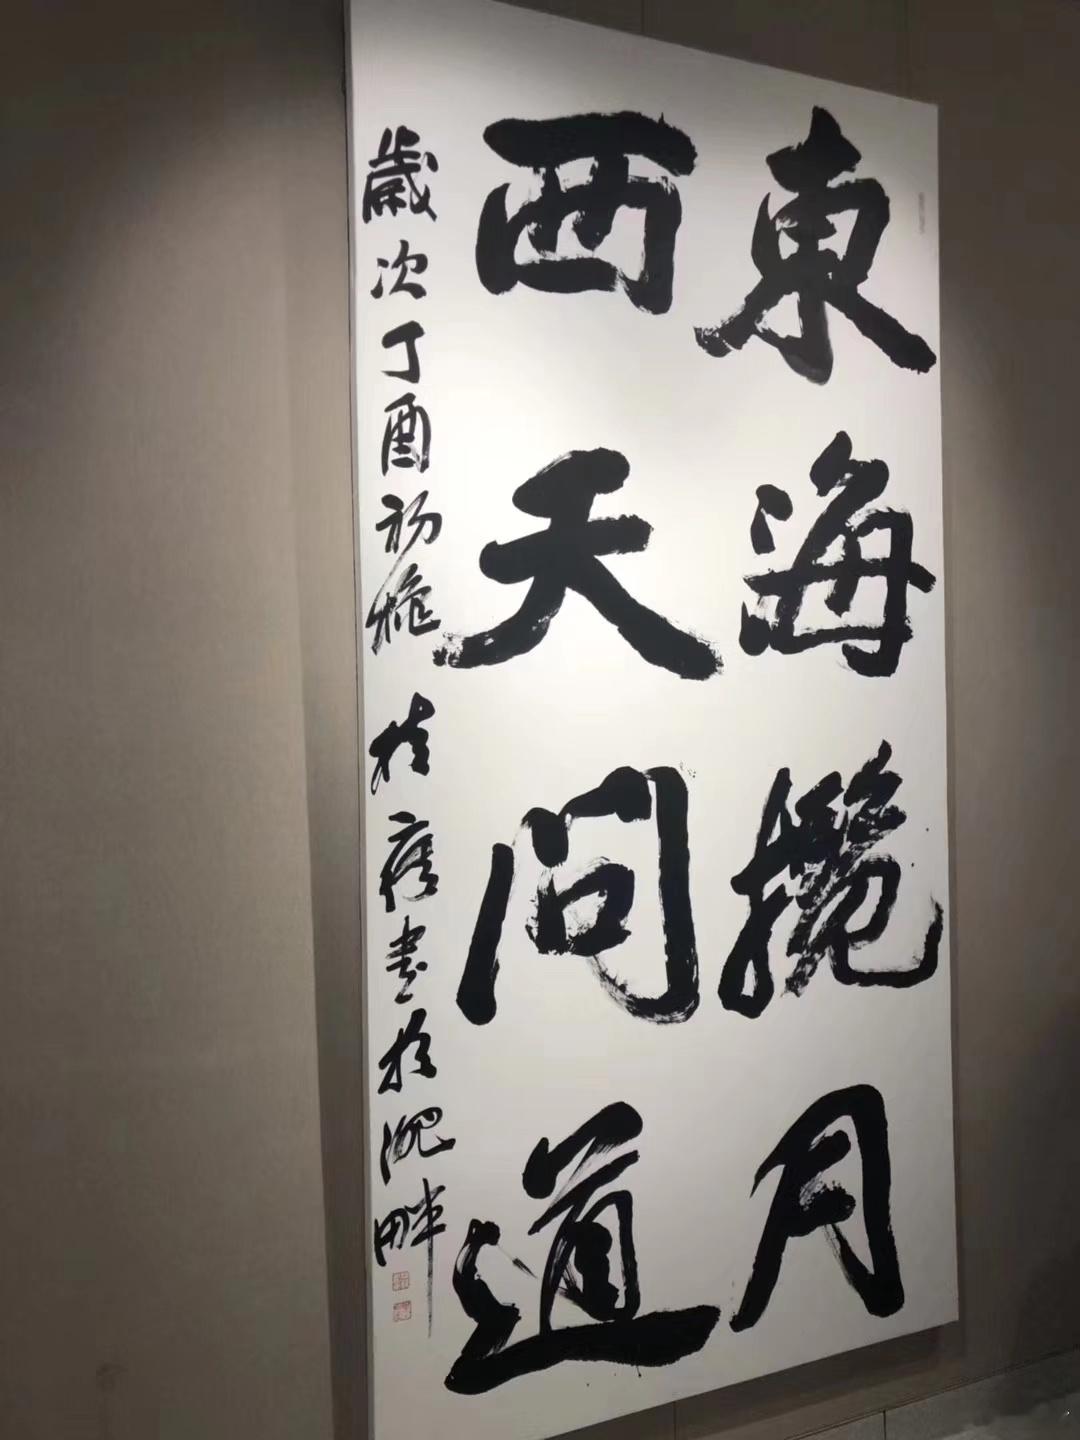 東海攬月
西天問道
歲次丁酉初 書於 畔